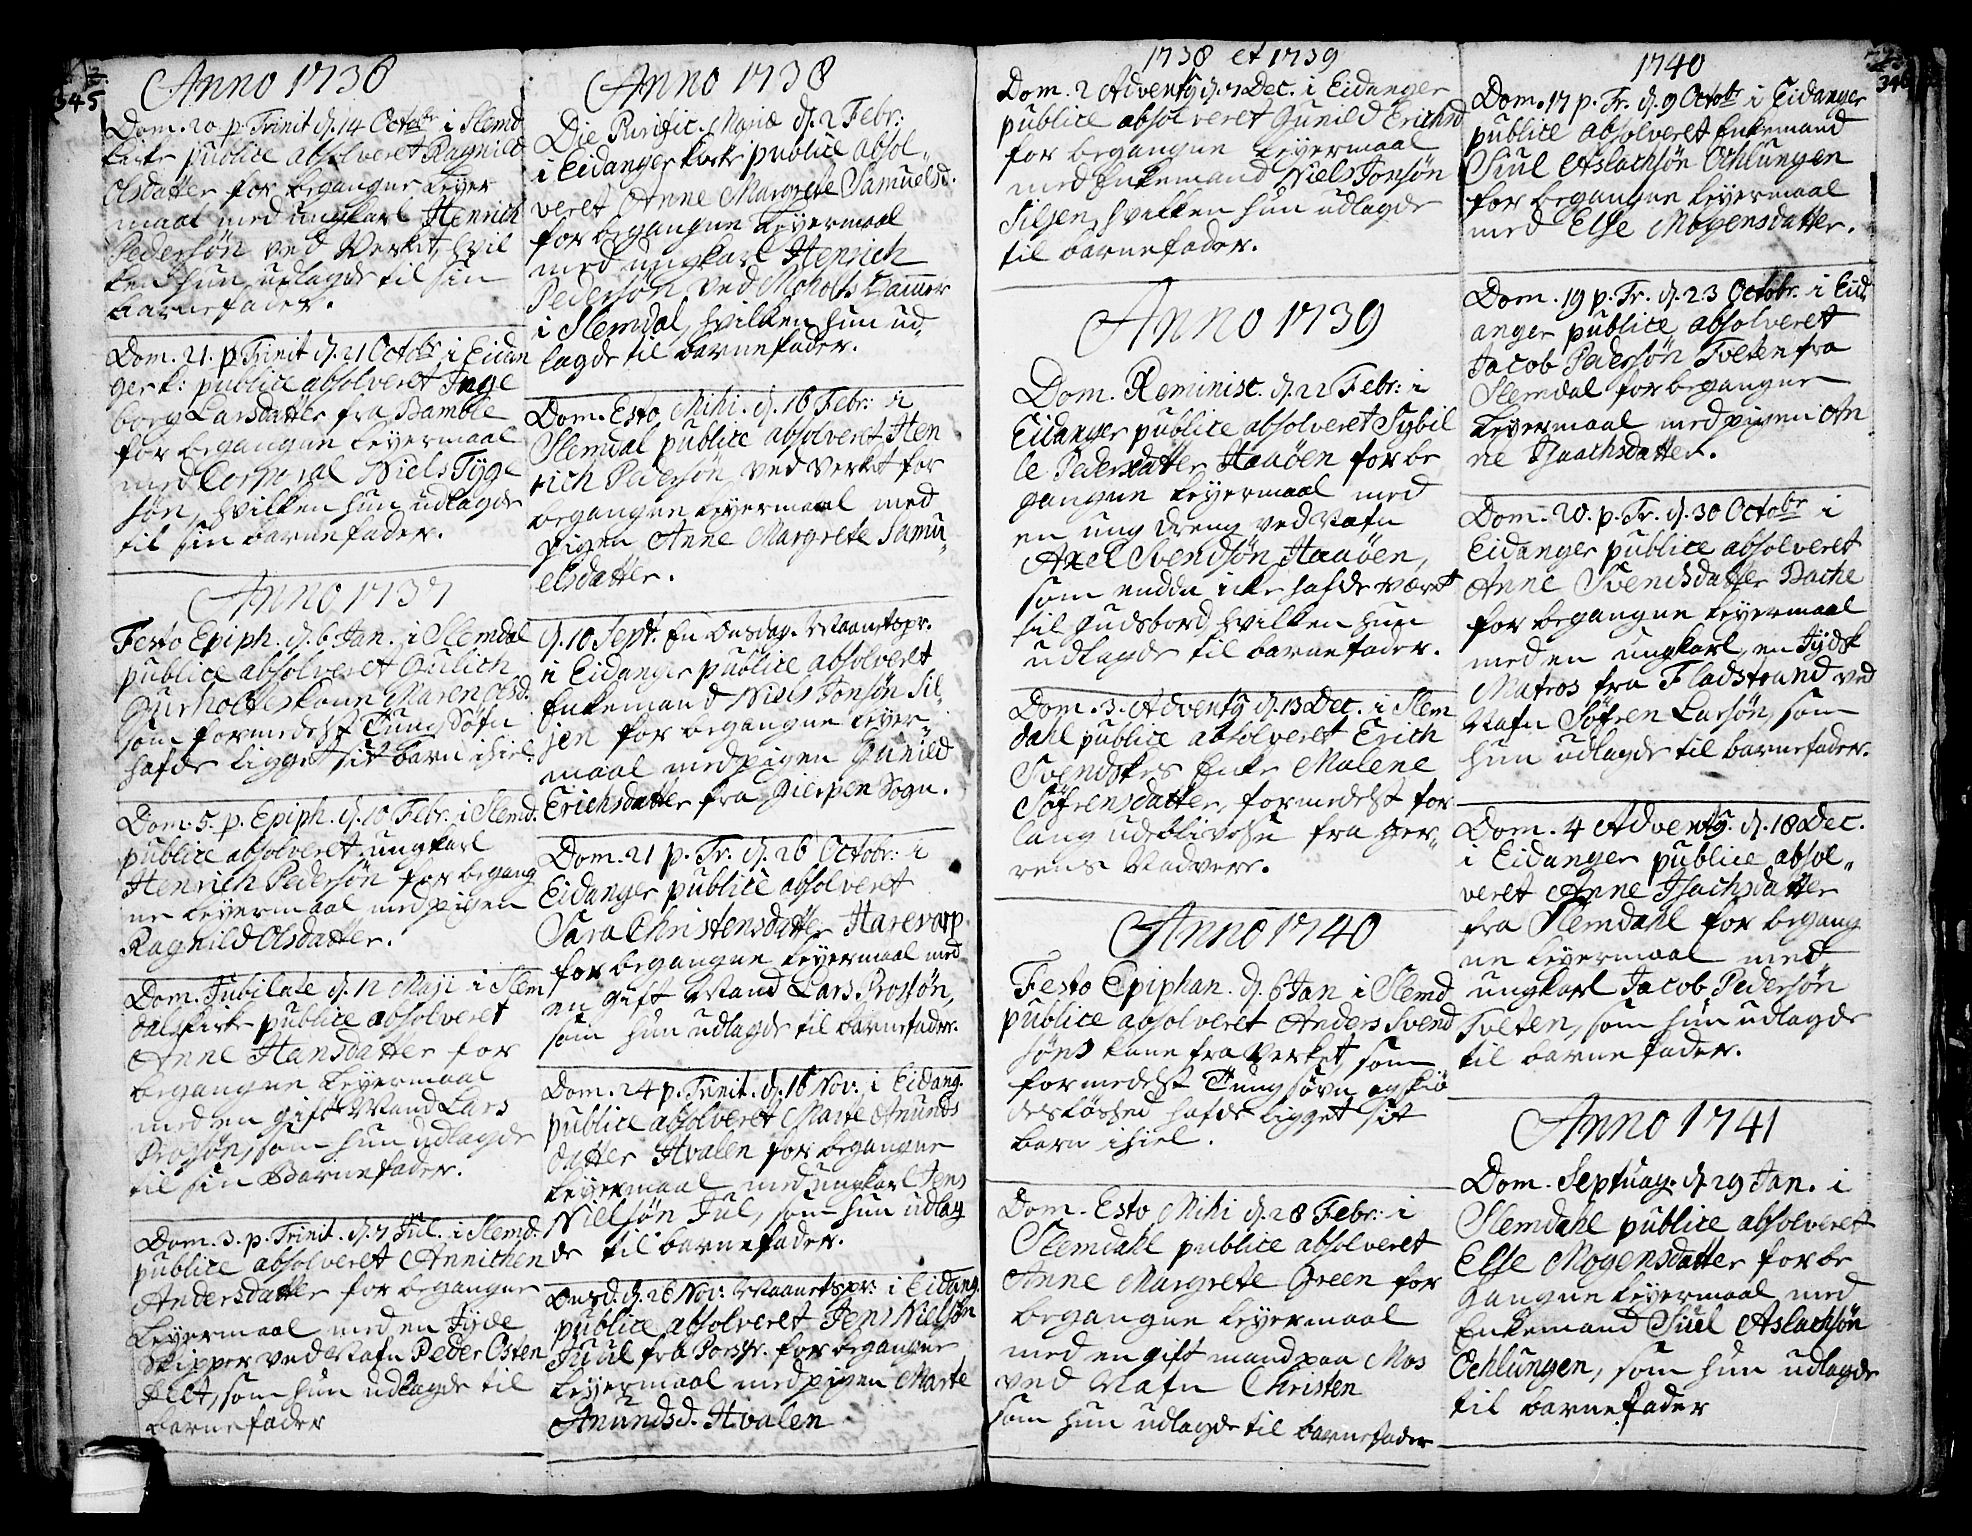 345
Anno 1736
Dom. 20 p. Trinit. d. 14 Octobr i Slemd.
kirke publice absolveret Ragnild
Olsdatter for begangne Leyer
maal med ungkarl Henrich
Pedersøn ved Verket, hvil
ken hun udlagde til sin
barnefader.
Dom. 21. p. Trinit d. 21 Octobr i Eidan
ger k: publice absolveret Inge
borg Larsdatter fra Bamble
for begangne Leyermaal
med Corporal Niels Tyge
søn, hvilken hun udlagde
til sin barnefader.
Anno 1737
Festo Epiph. d. 6 Jan. i Slemdal
publice absolveret Gulich
Gurholts kone Maren Olsd.
som formedelst Tung Søfn
hafde ligget sit barn ihiel.
Dom. 5. p. Epiph. d. 10 Febr. i Slemd.
publice absolveret ungkarl
Henrich Pedersøn for begang
ne Leyermaal med pigen
Ragnild Olsdatter.
Dom. Jubilate d. 12 Maji i Slem
dals kirke publice absolveret
Anne Hansdatter for
begangne Leyermaal
med en gift Mand Lars
Rossøn, som hun udlagde
til sin Barnefader.
Dom. 3. p. Trinit. d. 7 Jul. i Slemd.
publice absolveret Annichen
Andersdatter for begangne
Leyermaal med en Jyde
Skipper ved Nafn Peder Osten
felt, som hun udlagde til
barnefader
Anno 1738
Die Purific. Mariæ d. 2 Febr:
i Eidanger kirke publice absol-
veret Anne Margrete Samuelsd.
for begangne Leyermaal
med ungkarl Henrich
Pedersøn ved Moholts Hammer
i Slemdal, hvilken hun ud-
lagde til barnefader.
Dom. Esto Mihi. d. 16 Febr: i
Slemdal publice absolveret Hen
rich Pedersøn ved Verket for
begangne Leyermaal med
pigen Anne Margrete Samu-
elsdatter.
d. 10 Sept. En Onsdag. Maanetspr.
i Eidanger publice absolveret
Enkemand Niels Jonsøn Sil-
jen for begangne Leyer
maal med pigen Gunild
Erichsdatter fra Gierpen Sogn.
Dom. 21 p. Tr. d. 26 Octobr: i
Eidanger publice absolveret
Sara Christensdatter Harevorp.
for begangne Leyermaal med
en gift Mand Lars Rossøn,
som hun udlagde til barnefader.
Dom. 24 p. Trinit. d. 16 Nov: i Eidang.
publice absolveret Marte Anunds
datter Hvalen for begangne
Leyermaal med ungkarl Jens
Nielsøn Jul, som hun udlag
de til barnefader.
Onsd. d. 26 Nov: Maanetspr: i Eidang.
publice absolveret Jens Nielsøn
Juul fra Porsgr. for begangne
Leyermaal med pigen Marte
Anunds d. Hvalen
1738 et 1739
Dom. 2 Adventg d. 7 Dec. i Eidanger
publice absolveret Gunild Erichsd
for begangne Leyermaal
med Enkemand Niels Jonsøn
Siljen, hvilken hun udlagde
til barnefader.
Anno 1739
Dom. Reminisc. d. 22 Febr: i
Eidanger publice absolveret Sybil
le Pedersdatter Haaøen for be
gangne Leyermaal med
en ung dreng ved Nafn
Axel Svendsøn Haaøen,
som endda icke hafde vært
til Gudsbord, hvilken hun
udlagde til barnefader.
Dom. 3. Adventg d. 13 Dec. i Slem
dahl publice absolveret Erich
Svendskes Enke Malene
Søfrensdatter, formedelst for
lang udblivelse fra Her-
rens Nadvere.
Anno 1740
Festo Epiphan. d. 6 Jan i Slemd
publice absolveret Anders Svend
søns kone fra Verket, som
formedelst Tung søvn og skiø
desløshed hafde ligget sit
barn ihiel.
Dom. Esto Mihi d. 28 Febr: i
Slemdahl publice absolveret
Anne Margrete Green for
begangne Leyermaal
med en gift mand paa Mos
ved Nafn Christen
som hun udlagde til barnefader
346
1740
Dom. 17 p. Tr. d. 9 Octobr i Eidanger
publice absolveret Enkemand
Siul Aslachsøn Ochlungen
for begangne Leyermaal
med Else Mogensdatter.
Dom. 19 p. Tr. d. 23 Octobr. i Eid
anger publice absolveret
Jacob Pedersøn Tveten fra
Slemdal for begangne
Leyermaal med pigen An
ne Isaachsdatter.
Dom. 20. p. Tr. d. 30 Octobr i
Eidanger publice absolveret
Anne Svendsdatter Bache
for begangne Leyermaal
med en ungkarl, en Jydsk
Matros fra Fladstrand ved
Nafn Søfren Larsøn, som
hun udlagde til barnefader.
Dom. 4 Adventg. d. 18 Dec.
i Eidanger publice absol-
veret Anne Isachsdatter
fra Slemdahl for begang
ne Leyermaal med
ungkarl Jacob Pedersøn
Tveten, som hun udlagde
til barnefader.
Anno 1741
Dom. Septuag. d. 29 Jan. i
Slemdahl publice absolveret
Else Mogensdatter for be
gangne Leyermaal med
Enkemand Siul Aslachsøn
Ochlungen, som hun udlagde
til barnefader